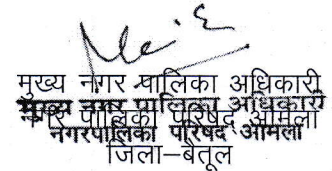 मुख्य नगर पालिका अधिकारी
मुख्य नगर पालिका अधिकारी
नगर पालिका परिषद् आमला
नगरपालिका परिषद आमला
जिला–बैतूल